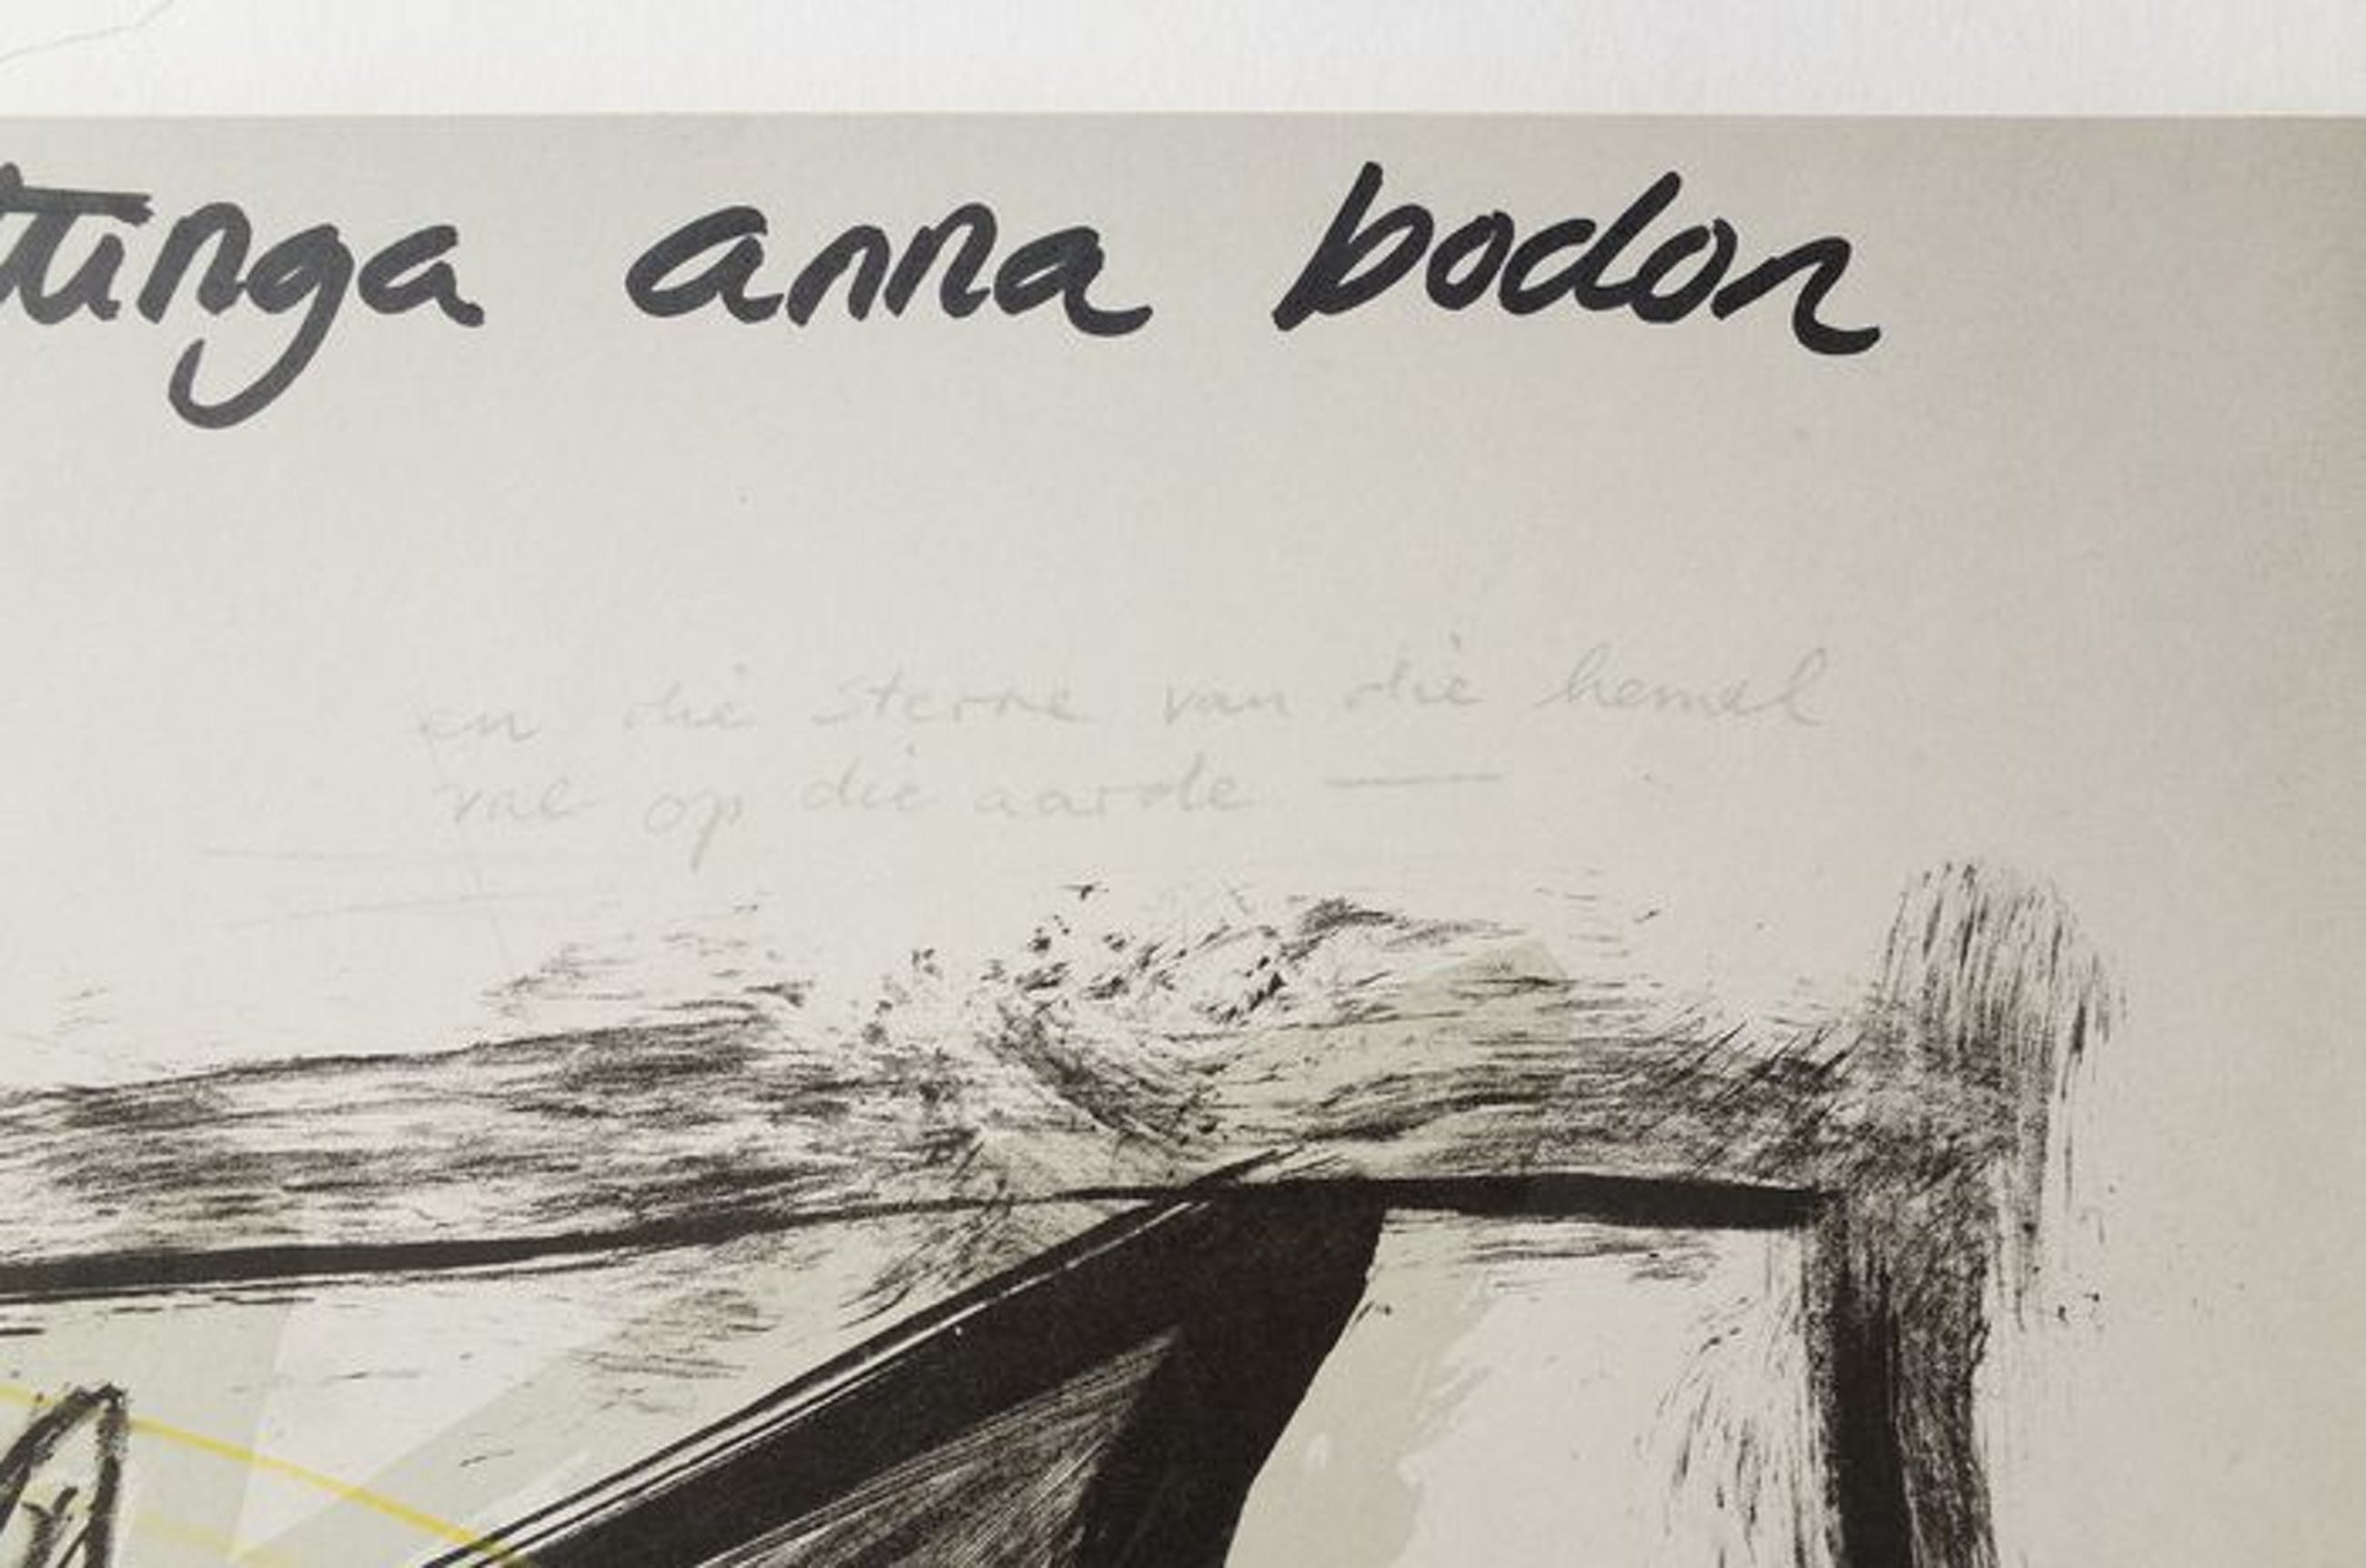 tunga anna bodon
en die sterre van die hemel
val op die aarde —